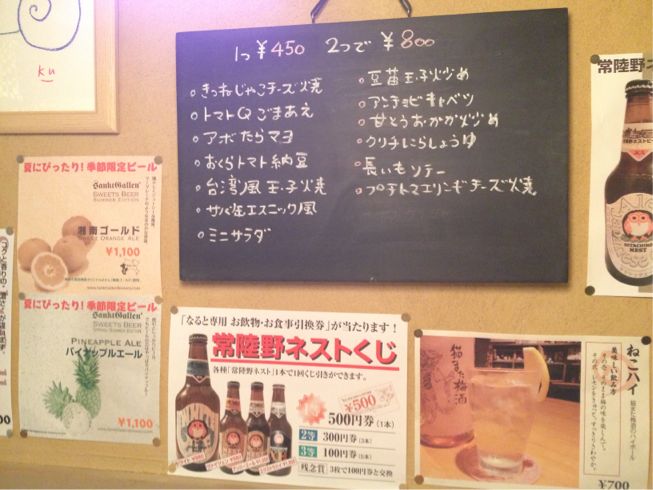 ku
1つ ¥450 2つで ¥800
○きつねじゃこチーズ焼
○トマトQごまあえ
○アボたらマヨ
○おくらトマト納豆
○台湾風 玉子焼
○サバ缶エスニック風
○ミニサラダ
○豆苗玉子炒め
○アンチョビキャベツ
○甘とうおかか炒め
○クリチにらしょうゆ
○長いもソテー
○プチトマエリンギチーズ焼
夏にぴったり!季節限定ビール
SanktGallen
SWEETS BEER
SUMMER EDITION
湘南ゴールド
ORANGE ALE
¥1,100
夏にぴったり!季節限定ビール
SanktGallen
SWEETS BEER
PINEAPPLE ALE
パイナップルエール
¥1,100
「なると専用 お飲物・お食事引換券」が当たります!
常陸野ネストくじ
各種「常陸野ネスト」1本で1回くじ引きができます。
¥500
500円券(1本)
2等 300円券
3等 100円券(5本)
残念賞 3枚で100円券と交換
常陸野
HITACHINO
NEST
猫また梅酒
ねこハイ
猫また梅酒のハイボール
美味しい飲み方
¥700